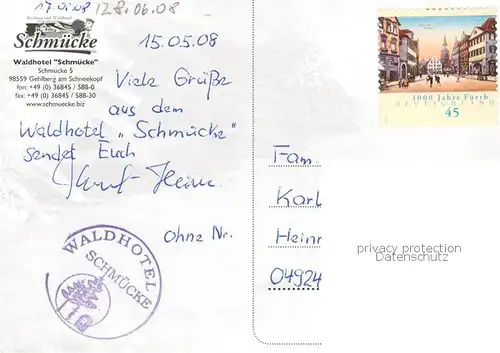 17.01.08 128.06.08
Berghaus und Waldhotel
Schmücke
Waldhotel "Schmücke"
Schmücke 5
98559 Gehlberg am Schneekopf
fon: +49 (0) 36845 / 588-0
fax: +49 (0) 36845 / 588-30
www.schmuecke.biz
15.05.08
Viele Grüße
aus dem
Waldhotel „Schmücke“
sendet Euch
Ohne Nr.
WALDHOTEL
SCHMÜCKE
1000 Jahre Fürth
DEUTSCHLAND
45
Fam.
Karl
Heinr
04924
privacy protection
Datenschutz